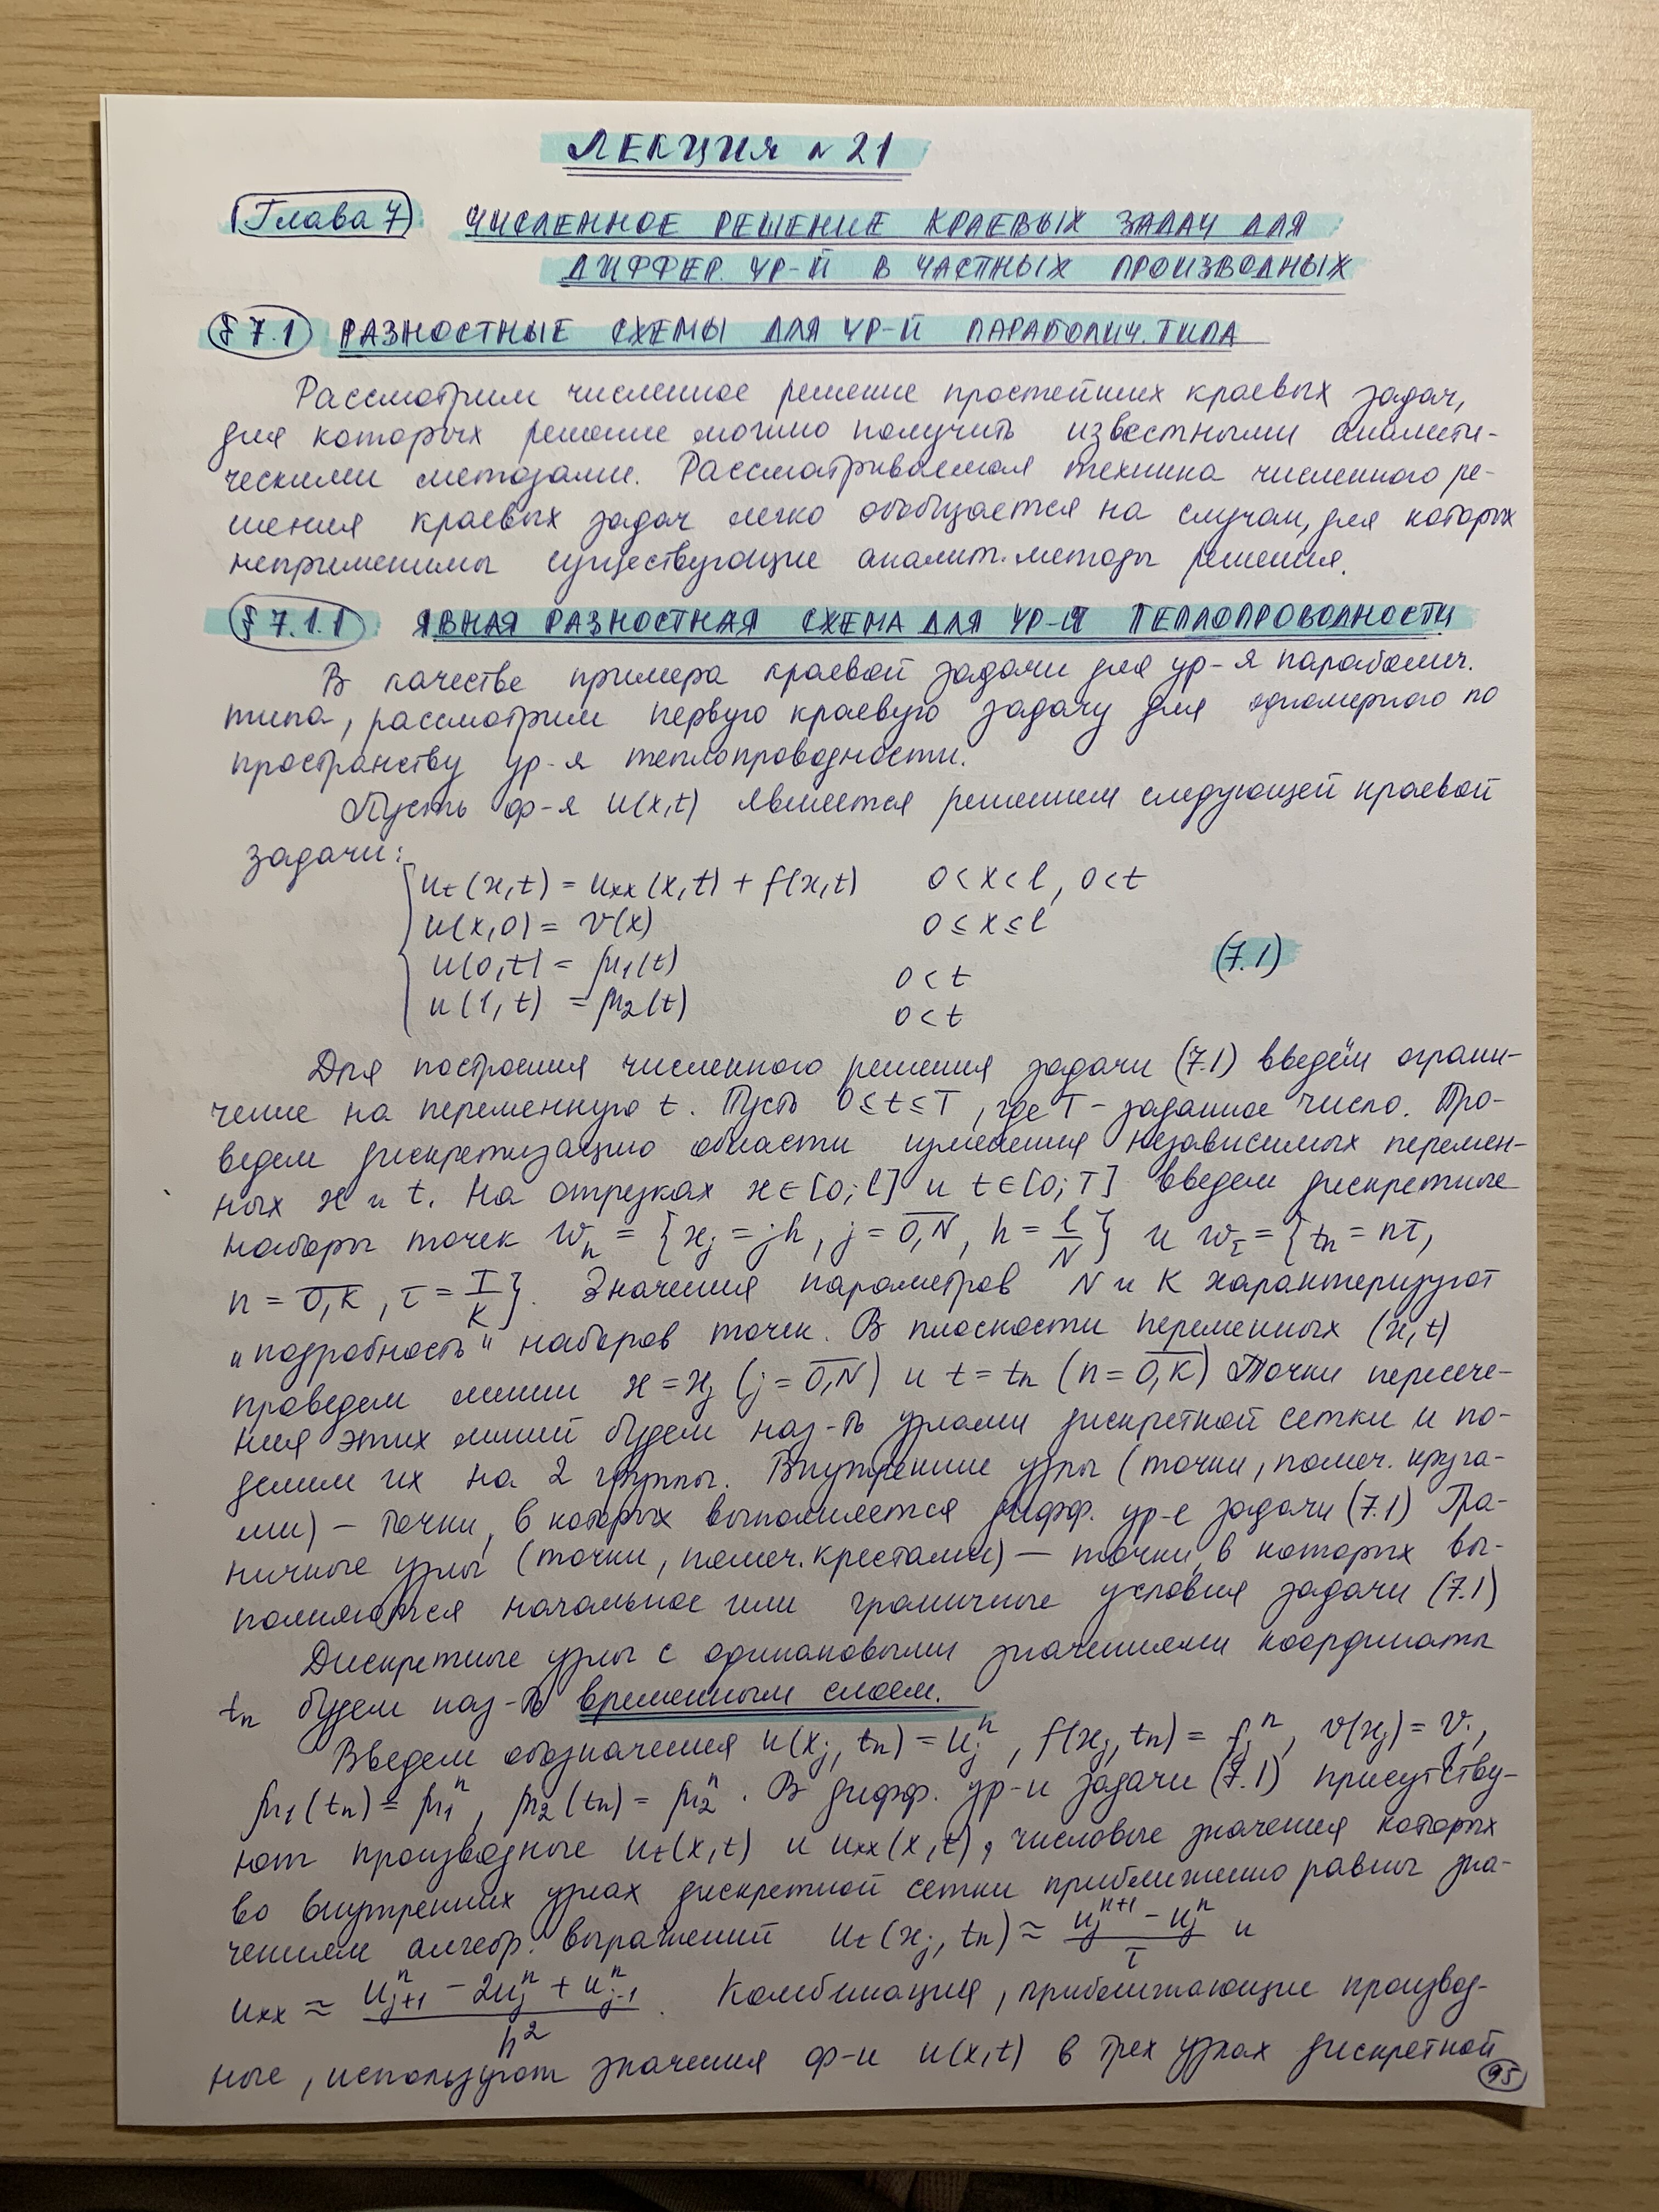 ЛЕКЦИЯ №21
Глава 7 ЧИСЛЕННОЕ РЕШЕНИЕ КРАЕВЫХ ЗАДАЧ ДЛЯ
ДИФФЕР. УР-Й В ЧАСТНЫХ ПРОИЗВОДНЫХ
§ 7.1 РАЗНОСТНЫЕ СХЕМЫ ДЛЯ УР-Й ПАРАБОЛИЧ. ТИПА
Рассмотрим численное решение простейших краевых задач,
для которых решение можно получить известными аналити-
ческими методами. Рассматриваемая техника численного ре-
шения краевых задач легко обобщается на случаи, для которых
неприменимы существующие аналит. методы решения.
§ 7.1.1 ЯВНАЯ РАЗНОСТНАЯ СХЕМА ДЛЯ УР-Я ТЕПЛОПРОВОДНОСТИ
В качестве примера краевой задачи для ур-я параболич.
типа, рассмотрим первую краевую задачу для одномерного по
пространству ур-я теплопроводности.
Пусть ф-я u(x,t) является решением следующей краевой
задачи:
u_t(x,t) = u_xx(x,t) + f(x,t) 0<x<l, 0<t
u(x,0) = v(x) 0≤x≤l
u(0,t) = μ₁(t) 0<t (7.1)
u(1,t) = μ₂(t) 0<t
Для построения численного решения задачи (7.1) введём ограни-
чение на переменную t. Пусть 0≤t≤T, где T – заданное число. Про-
ведем дискретизацию области изменения независимых перемен-
ных x и t. На отрезках x∈[0;l] и t∈[0;T] введем дискретные
наборы точек w_h = {x_j = jh, j = 0,N, h = l/N} и w_τ = {t_n = nτ,
n = 0,K, τ = T/K}. Значения параметров N и K характеризуют
"подробность" наборов точек. В плоскости переменных (x,t)
проведем линии x = x_j (j = 0,N) и t = t_n (n = 0,K) Точки пересече-
ния этих линий будем наз-ть узлами дискретной сетки и по-
делим их на 2 группы. Внутренние узлы (точки, помеч. круга-
ми) – точки, в которых выполняется дифф. ур-е задачи (7.1) Гра-
ничные узлы (точки, помеч. крестами) – точки, в которых вы-
полняются начальное или граничные условия задачи (7.1)
Дискретные узлы с одинаковыми значениями координаты
t_n будем наз-ть временным слоем.
Введем обозначения u(x_j, t_n) = u_j^n, f(x_j, t_n) = f_j^n, v(x_j) = v_j,
μ₁(t_n) = μ₁^n, μ₂(t_n) = μ₂^n. В дифф. ур-и задачи (7.1) присутству-
ют производные u_t(x,t) и u_xx(x,t), числовые значения которых
во внутренних узлах дискретной сетки приближенно равны зна-
чениям алгебр. выражений u_t(x_j, t_n) ≈ (u_j^{n+1} - u_j^n)/τ и
u_xx ≈ (u_{j+1}^n - 2u_j^n + u_{j-1}^n)/h². Комбинация, приближающие производ-
ные, используют значения ф-и u(x,t) в трех узлах дискретной
95